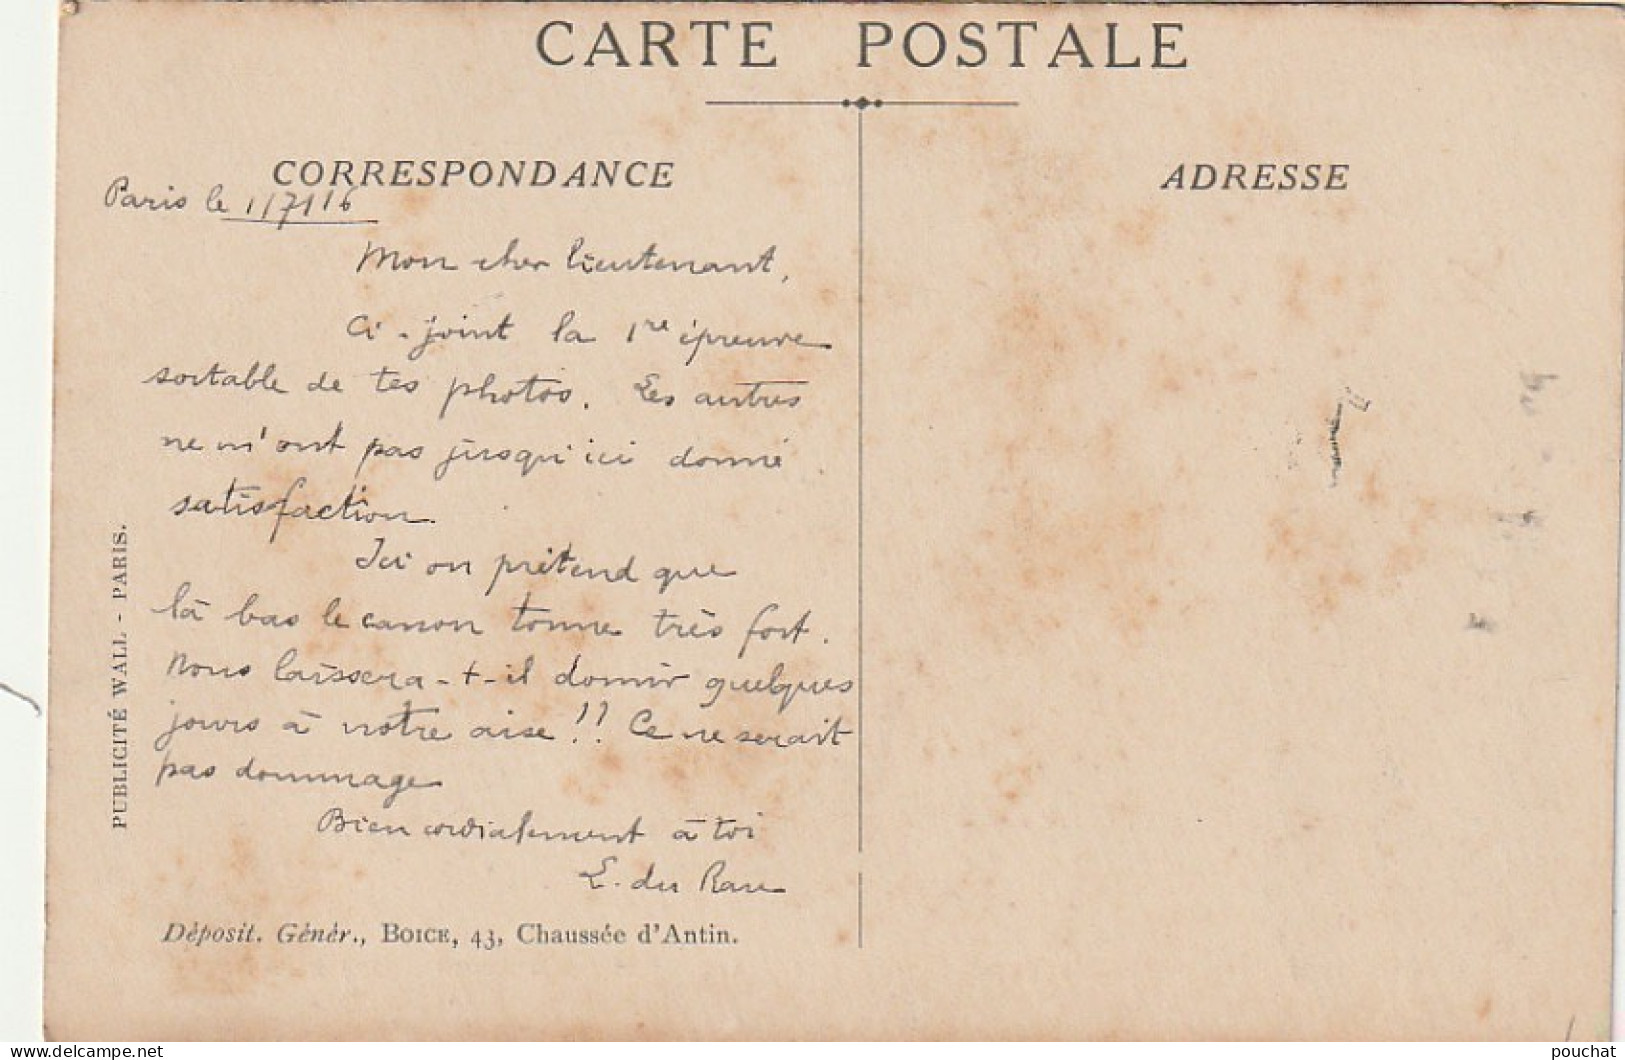 CARTE POSTALE
CORRESPONDANCE
ADRESSE
Paris le 1/7/16
Mon cher lieutenant,
Ci-joint la 1re épreuve
sortable de tes photos. Les autres
ne m'ont pas jusqu'ici donné
satisfaction.
Ici on prétend que
là bas le canon tonne très fort.
Nous laissera-t-il dormir quelques
jours à notre aise!! Ce ne serait
pas dommage
Bien cordialement à toi
E. du
Déposit. Génér., BOICE, 43, Chaussée d'Antin.
PUBLICITÉ WALL - PARIS.
pouchat